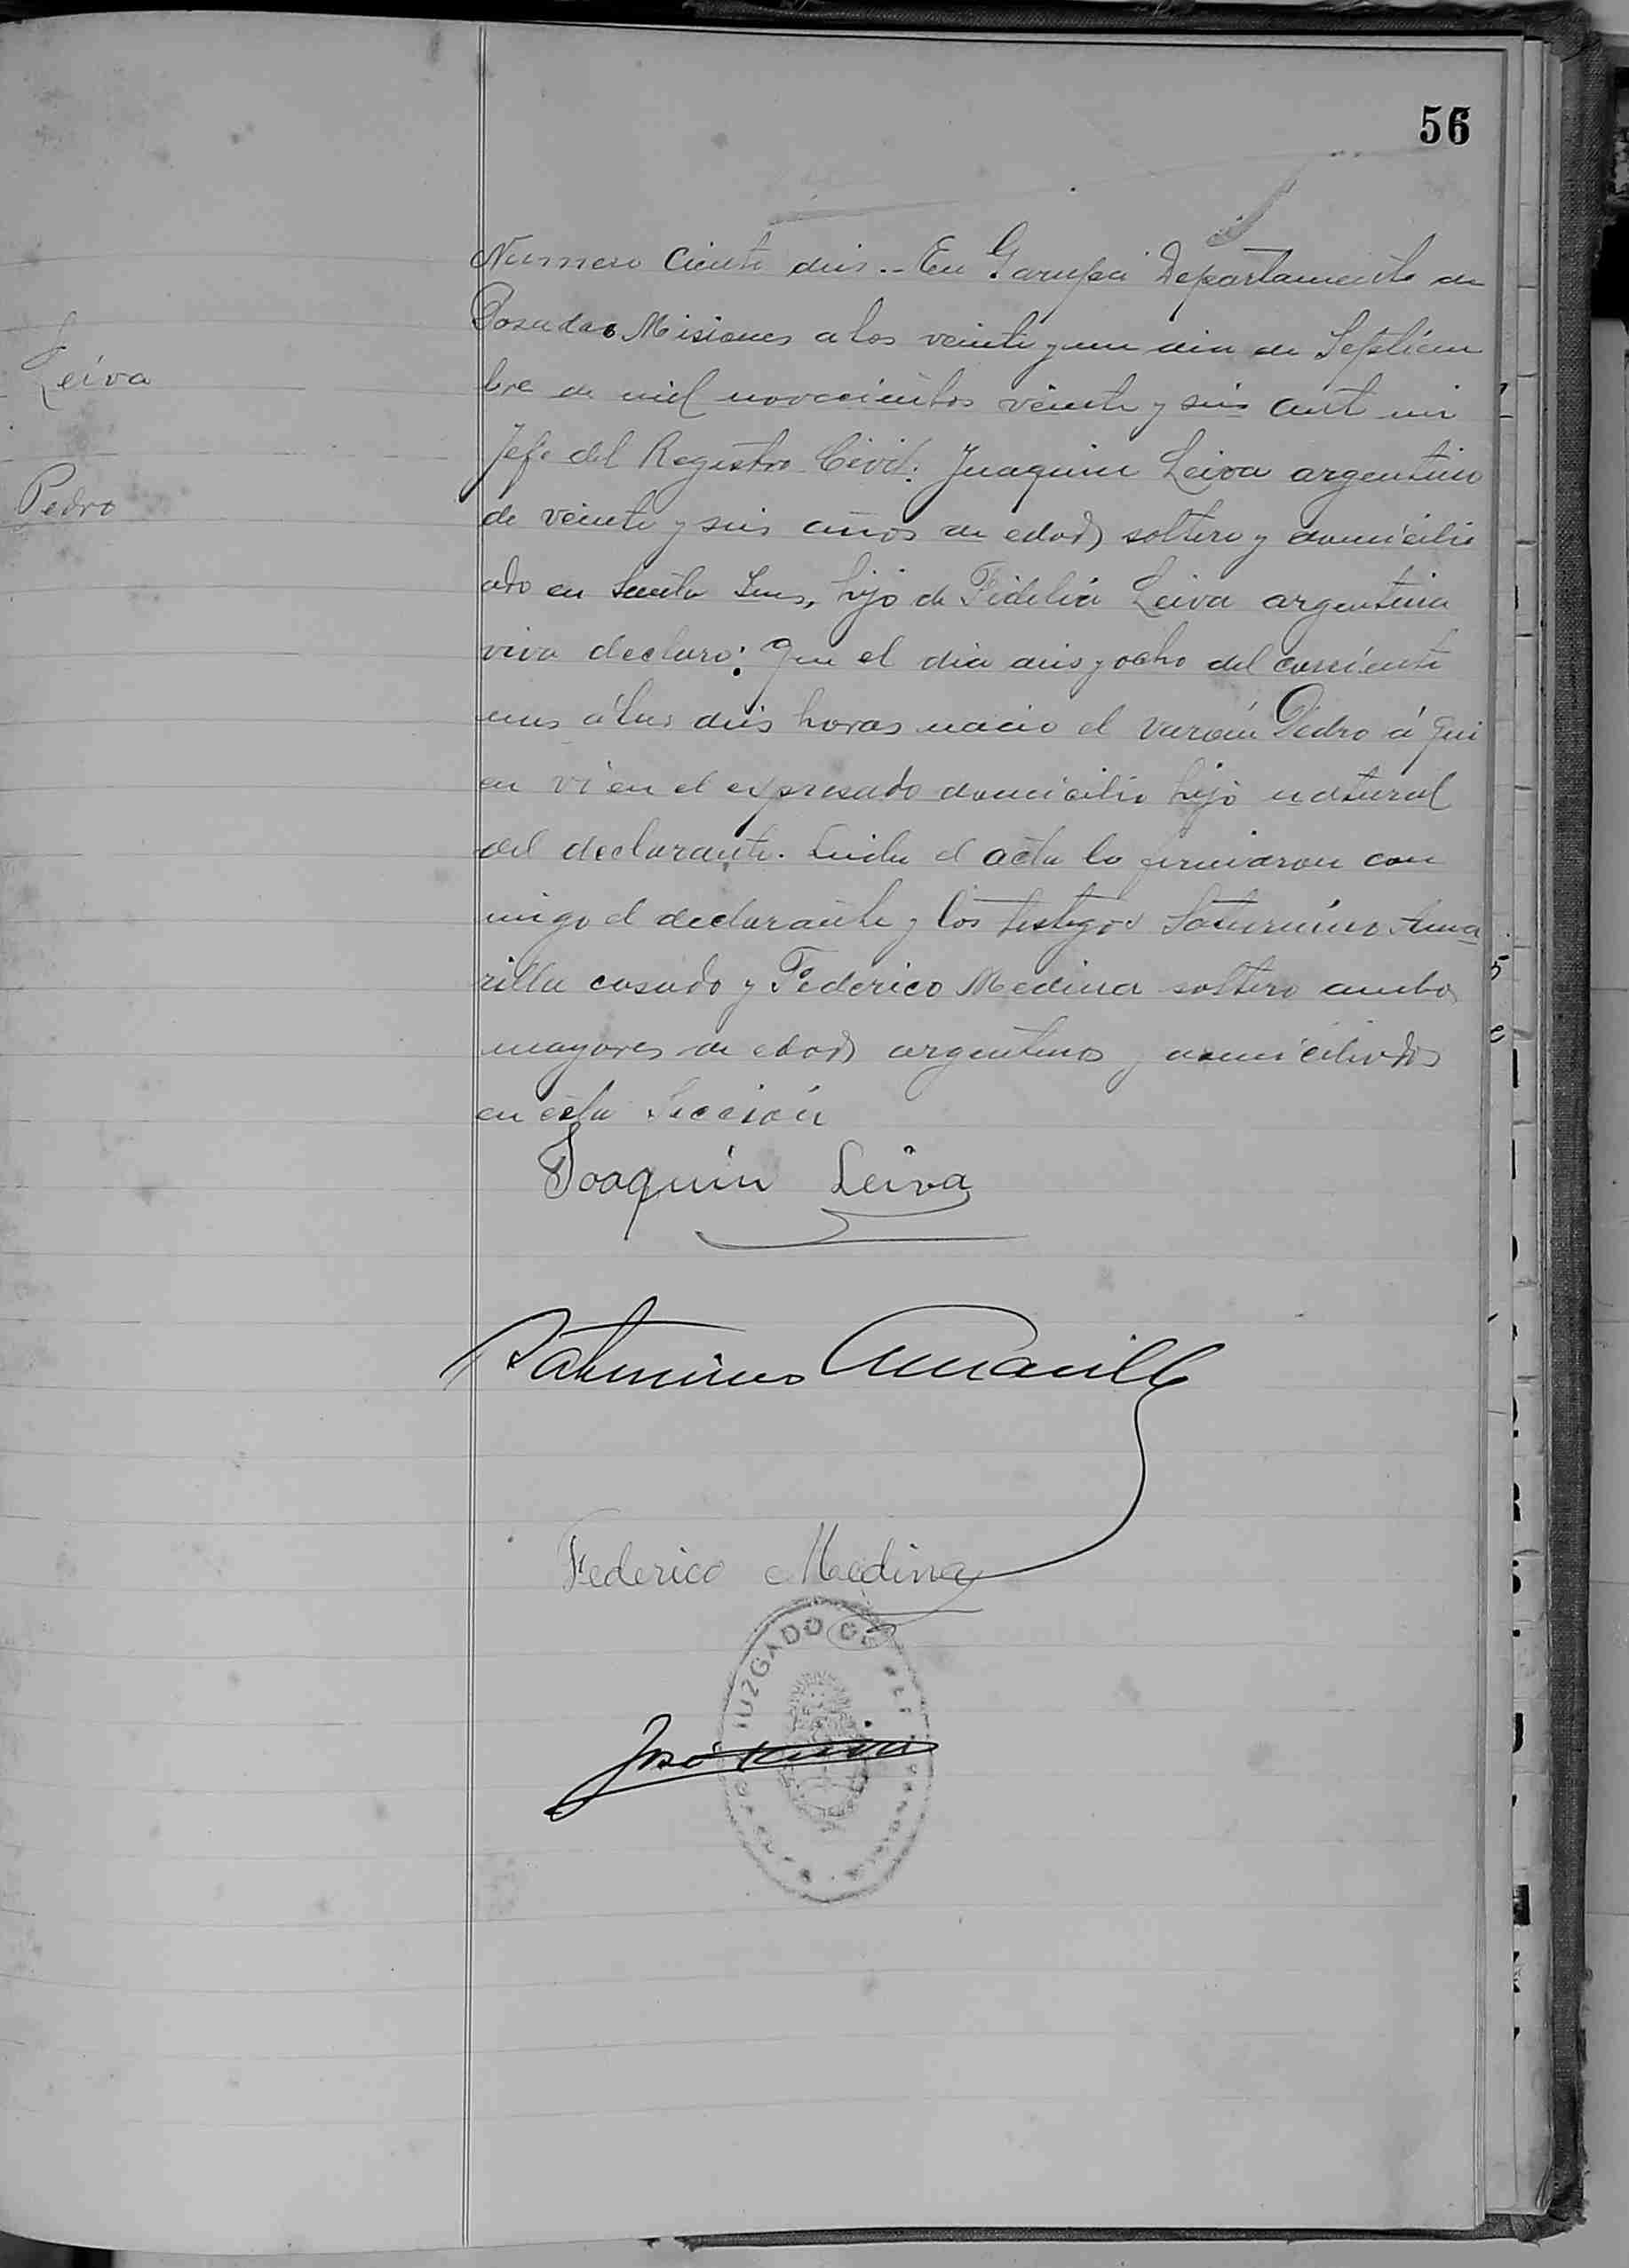 56
Leiva
Pedro
Numero Ciento dies.- En Garupá Departamento de
Posadas Misiones a los veinte y un dia de Septiem
bre de mil novecientos veinte y seis ante mi
Jefe del Registro Civil: Juaquin Leiva argentino
de veinte y seis años de edad soltero y domicilia
ado en Santa Ines, hijo de Fidelia Leiva argentina
viva declaro: Que el dia dies y ocho del corriente
mes á las dies horas nacio el varón Pedro á qui
en ví en el expresado domicilio hijo natural
del declarante. Leida el acta la firmaron con
migo el declarante y los testigos Saturnino Ama
rilla casado y Federico Medina soltero ambos
mayores de edad argentinos y domiciliados
en ésta Sección
Joaquin Leiva
Saturnino Amarilla
Federico Medina
José
JUZGADO DE